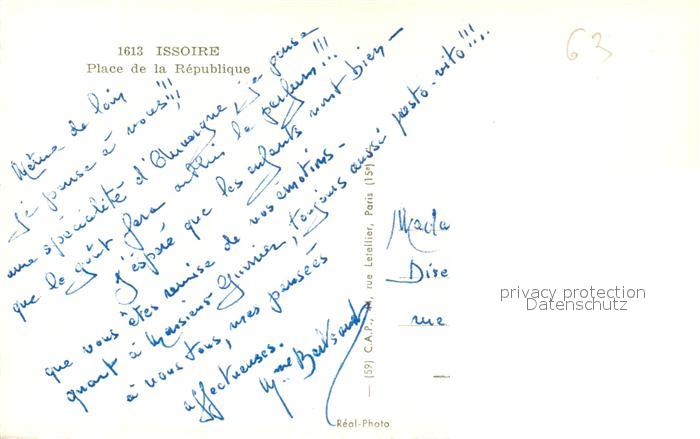 1613 ISSOIRE
Place de la République
63
Même de loin
je pense à vous!!!
une spécialité d'Auvergne & je pense
que le goût fera oublier le parfum!!!
J'espère que les enfants vont bien -
que vous êtes remise de vos émotions -
quant à Monsieur toujours aussi presto-vito!!!
à vous tous, mes pensées
affectueuses.
Mme
(59) C.A.P., rue Letellier, Paris (15e)
Réal-Photo
Mada
Dire
rue
privacy protection
Datenschutz